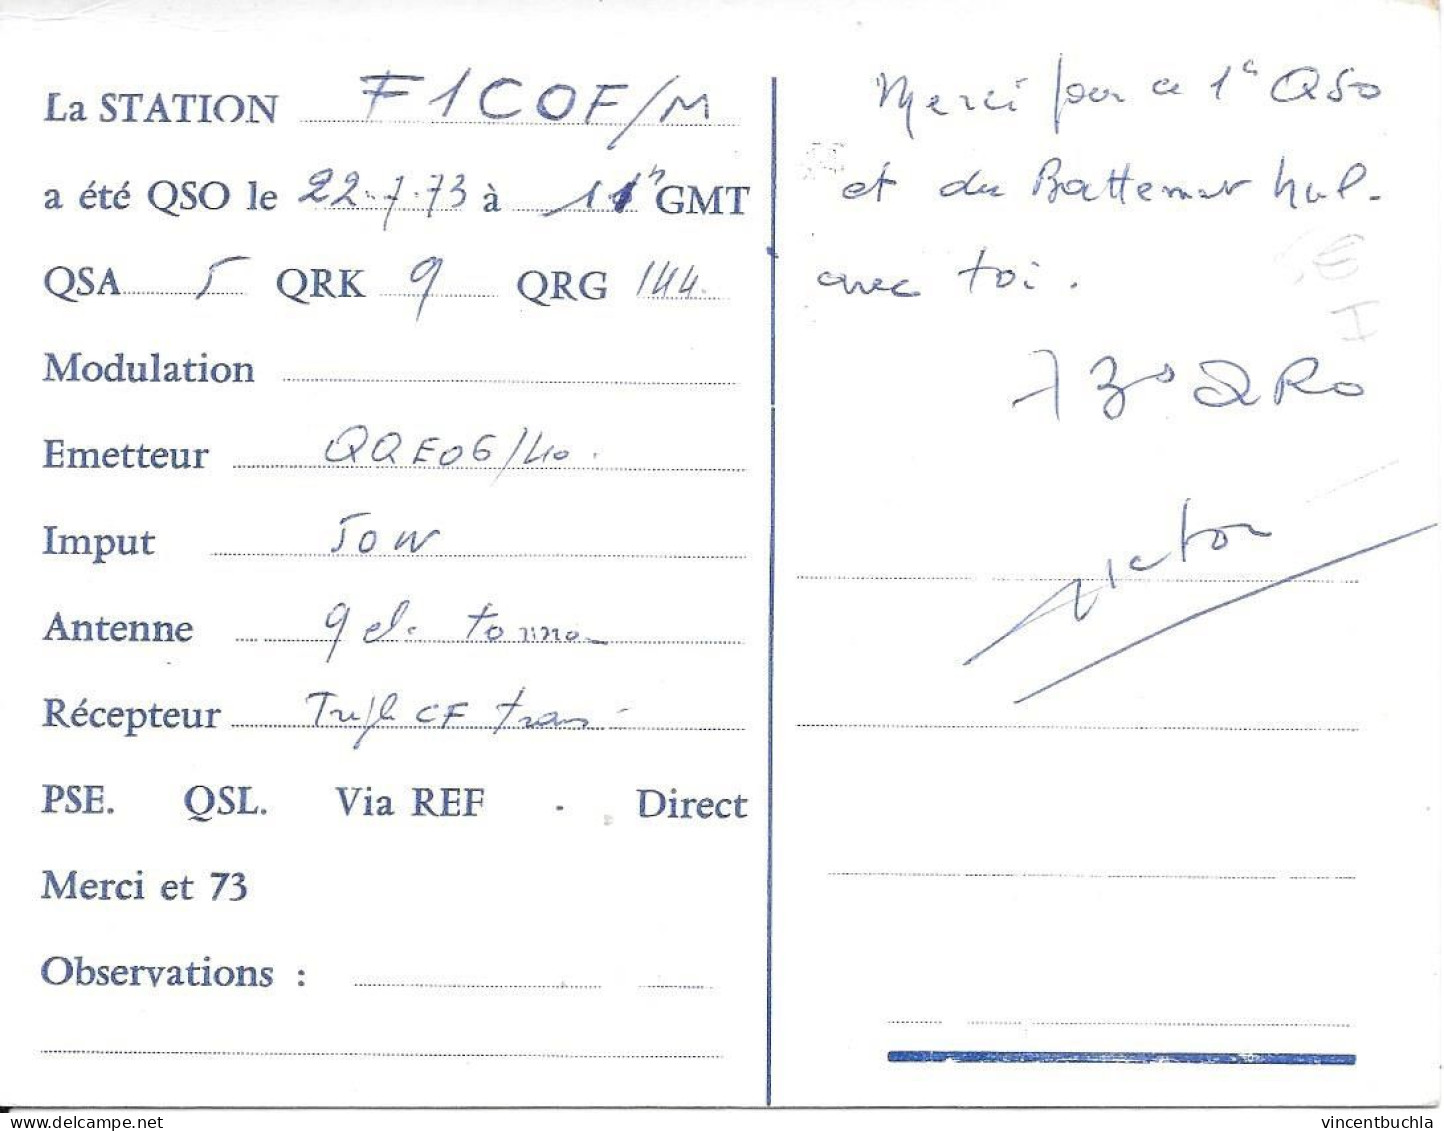 La STATION F1COF/M
a été QSO le 22.7.73 à 11h GMT
QSA 5 QRK 9 QRG 144.
Modulation
Emetteur QQE06/40.
Imput 50W
Antenne 9 el.
Récepteur Triple CF trans
PSE. QSL. Via REF - Direct
Merci et 73
Observations :
Merci pour ce 1e QSO
et du Battement nul.
avec toi.
73s QRO
Victor
vincentbuchla